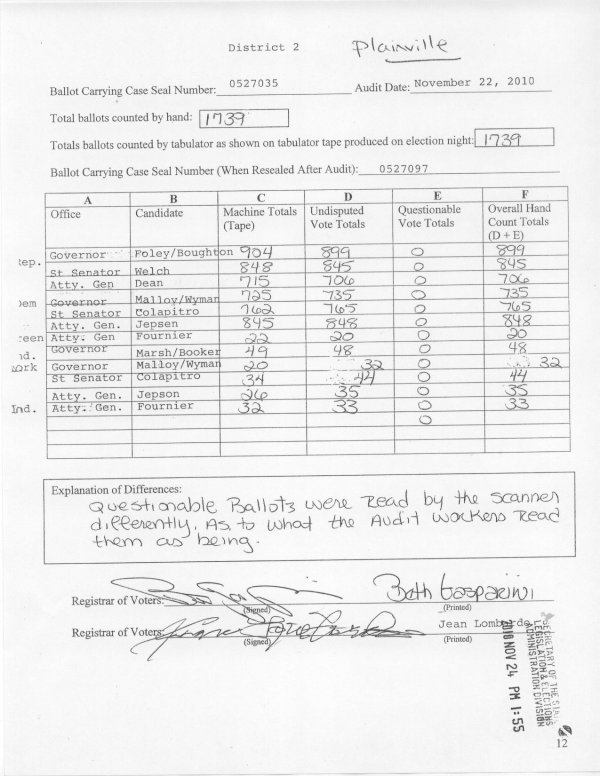 District 2 Plainville
Ballot Carrying Case Seal Number: 0527035 Audit Date: November 22, 2010
Total ballots counted by hand: 1739
Totals ballots counted by tabulator as shown on tabulator tape produced on election night: 1739
Ballot Carrying Case Seal Number (When Resealed After Audit): 0527097
A B C D E F
Office Candidate Machine Totals (Tape) Undisputed Vote Totals Questionable Vote Totals Overall Hand Count Totals (D + E)
Rep. Governor Foley/Boughton 904 899 0 899
St Senator Welch 848 845 0 845
Atty. Gen Dean 715 706 0 706
Dem Governor Malloy/Wyman 725 735 0 735
St Senator Colapitro 762 765 0 765
Atty. Gen. Jepsen 845 848 0 848
reen Atty. Gen Fournier 22 20 0 20
nd. Governor Marsh/Booker 49 48 0 48
ork Governor Malloy/Wyman 20 32 0 32
St Senator Colapitro 34 44 0 44
Atty. Gen. Jepson 26 35 0 35
Ind. Atty. Gen. Fournier 32 33 0 33
0
Explanation of Differences:
Questionable Ballots were Read by the scanner
differently, As to what the Audit workers Read
them as being.
Registrar of Voters: Beth Gasparini
(Signed) (Printed)
Registrar of Voters: Jean Lombardo
(Signed) (Printed)
SECRETARY OF THE STATE
LEGISLATION & ELECTIONS
ADMINISTRATION DIVISION
2010 NOV 24 PM 1:55
12